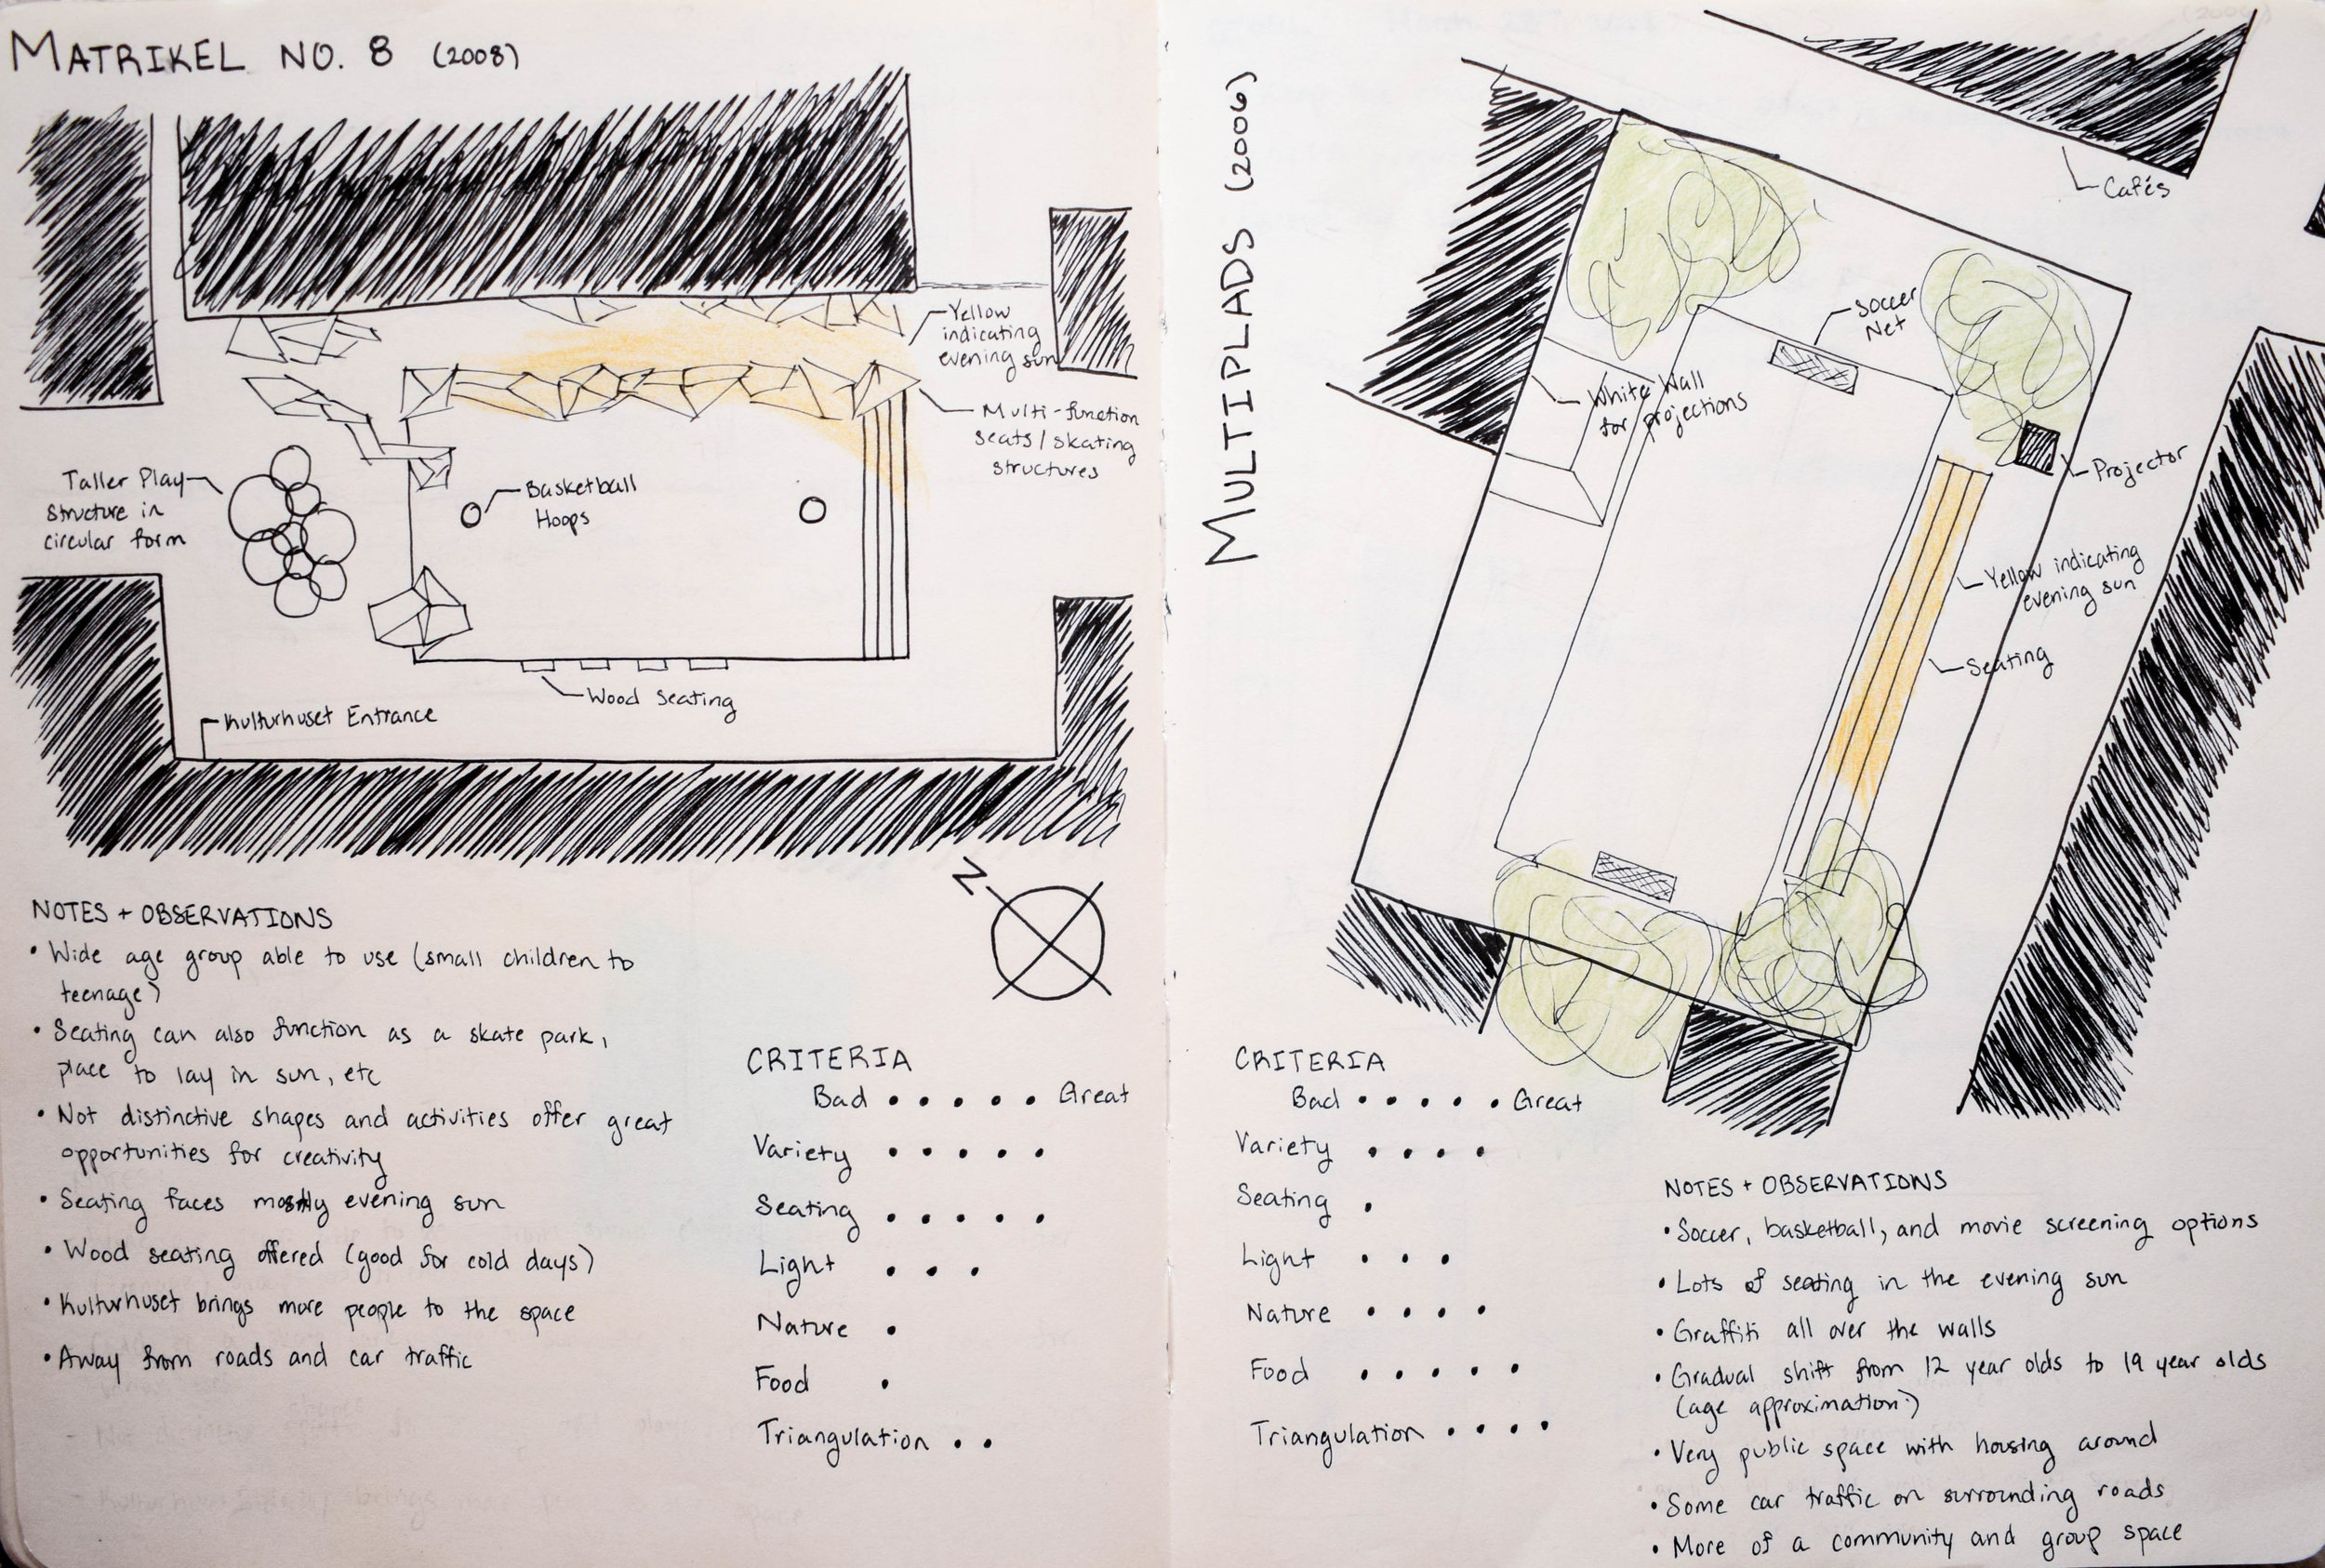 MATRIKEL NO. 8 (2008)
Yellow
indicating
evening sun
Multi-function
seats/skating
structures
Taller Play
structure in
circular form
Basketball
Hoops
Wood Seating
Kulturhuset Entrance
N
NOTES + OBSERVATIONS
• Wide age group able to use (small children to
teenage)
• Seating can also function as a skate park,
place to lay in sun, etc
• Not distinctive shapes and activities offer great
opportunities for creativity
• Seating faces mostly evening sun
• Wood seating offered (good for cold days)
• Kulturhuset brings more people to the space
• Away from roads and car traffic
CRITERIA
Bad • • • • • Great
Variety • • • • •
Seating • • • • •
Light • • •
Nature •
Food •
Triangulation • •
MULTIPLADS (2006)
Cafés
Soccer
Net
White Wall
for projections
Projector
Yellow indicating
evening sun
Seating
CRITERIA
Bad • • • • • Great
Variety • • • •
Seating •
Light • • •
Nature • • • •
Food • • • • •
Triangulation • • • •
NOTES + OBSERVATIONS
• Soccer, basketball, and movie screening options
• Lots of seating in the evening sun
• Graffiti all over the walls
• Gradual shift from 12 year olds to 19 year olds
(age approximation)
• Very public space with housing around
• Some car traffic on surrounding roads
• More of a community and group space